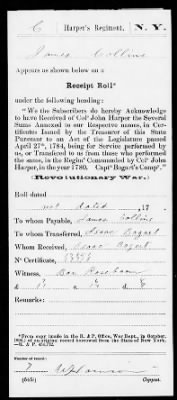 C Harper's Regiment, N.Y.
James Collins
Appears as shown below on a
Receipt Roll*
under the following heading:
"We the Subscribers do hereby Acknowledge
to have Received of Colo John Harper the Several
Sums Annexed to our Respective names, in Cer-
tificates Issued by the Treasurer of this State
Pursuant to an Act of the Legislature passed
April 27th, 1784, being for Service performed by
us, or Transfered to us from those who performed
the same, in the Regimt Commanded by Colo John
Harper, in the year 1780. Captn Bogart's Compy."
(Revolutionary War.)
Roll dated
not dated, 17
To whom Payable, James Collins
To whom Transferred, Isaac Bogart
Whom Received, Isaac Bogart
No Certificate,
Witness,
£
Remarks:
*From copy made in the R. & P. Office, War Dept., in October,
of an original record borrowed from the State of New York.
—R. & P.
Number of record:
7
Copyist.